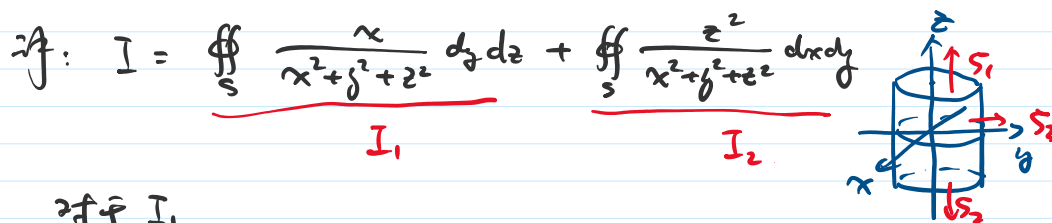 计: I = ∯_S x/(x²+y²+z²) dydz + ∯_S z²/(x²+y²+z²) dxdy
I₁ I₂
z S₁
S₂ y
x S₂
对于 I₁